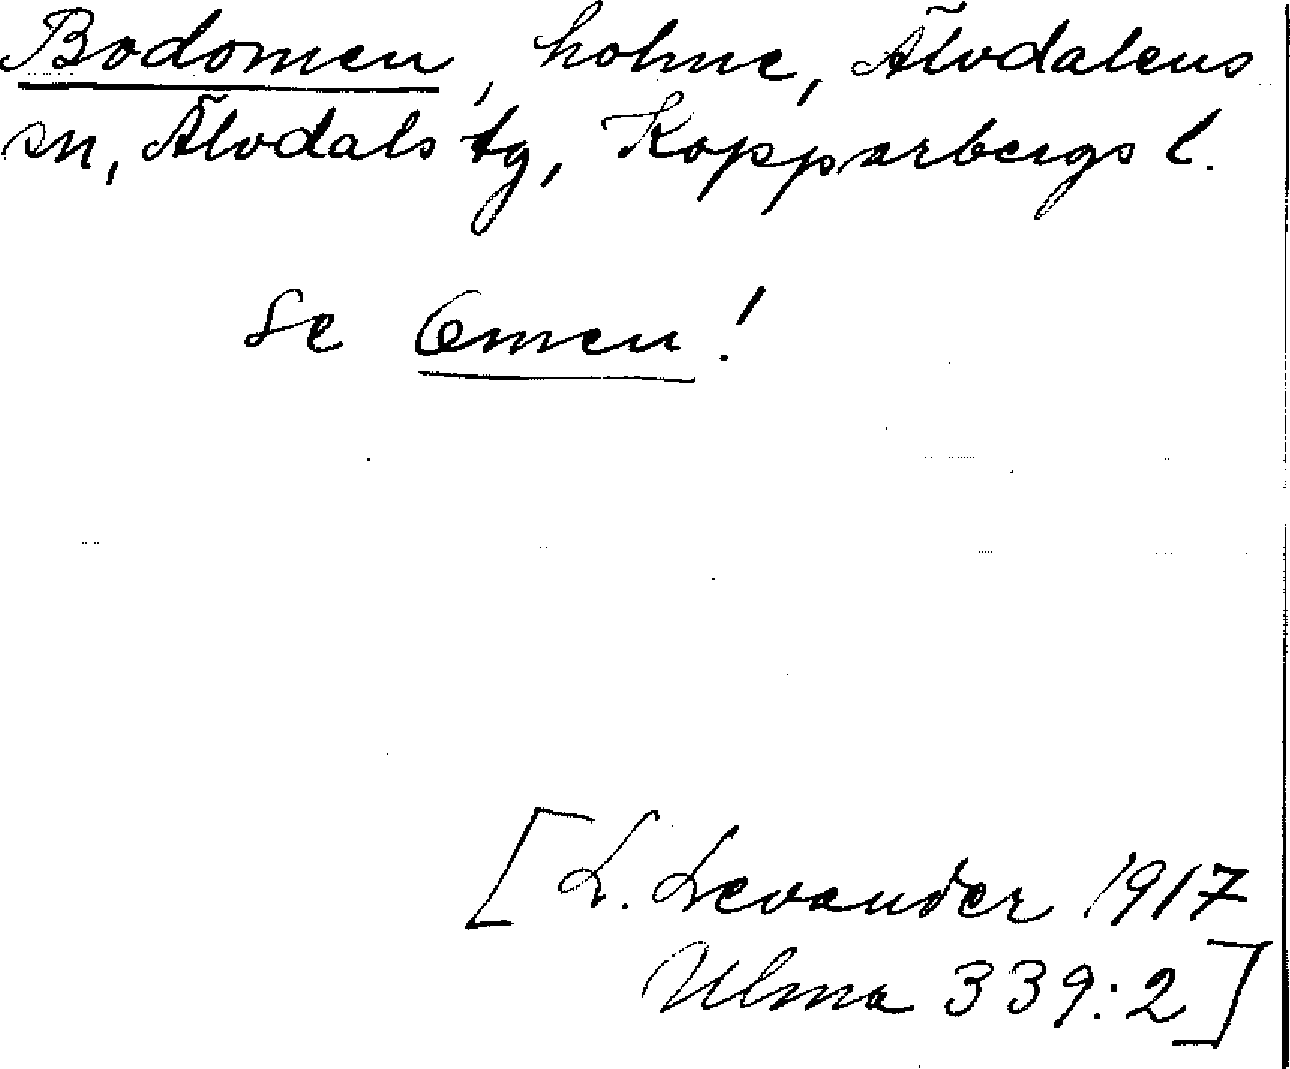 Bodomen, holme, Älvdalens
sn, Älvdals tg, Kopparbergs l.
Se Omen!
[L. Levander 1917
Ulma 339:2]